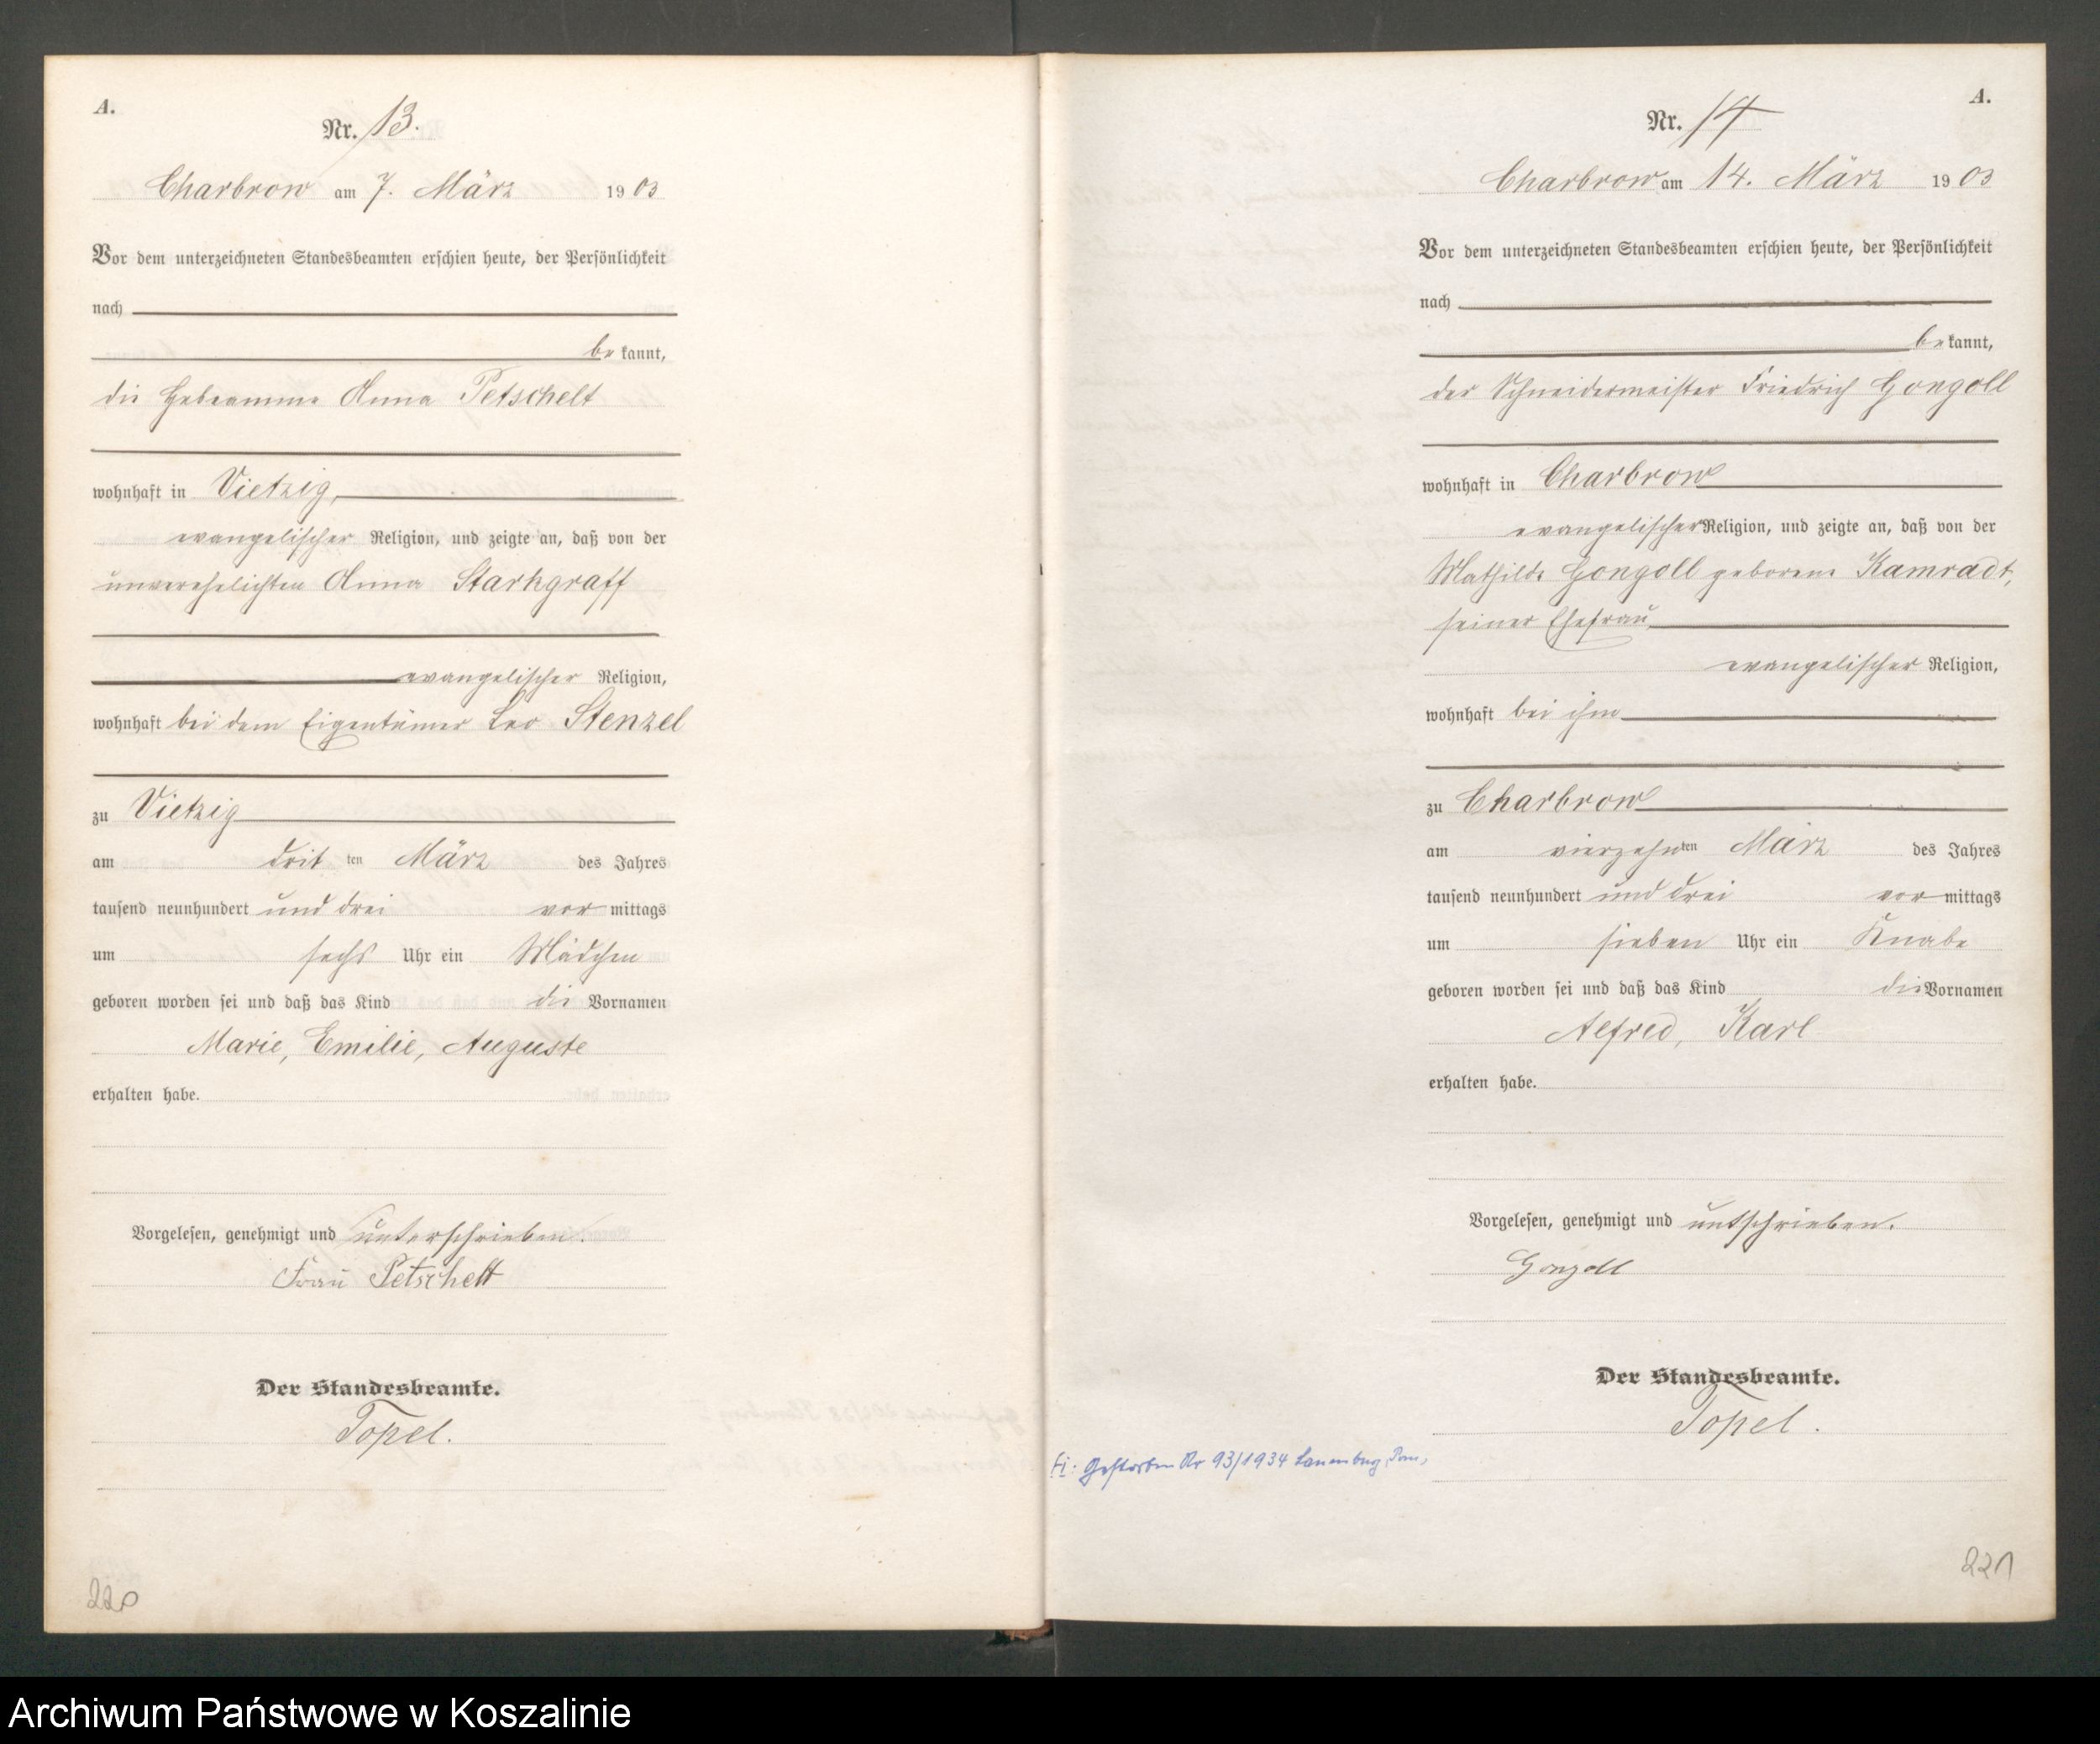 A.
Nr. 13.
Charbrow am 7. März 1903
Vor dem unterzeichneten Standesbeamten erschien heute, der Persönlichkeit
nach
be kannt,
die Hebeamme Anna Petschelt
wohnhaft in Vietzig,
evangelischer Religion, und zeigte an, daß von der
unverehelichten Anna Starkgraff
evangelischer Religion,
wohnhaft bei dem Eigentümer Leo Stenzel
zu Vietzig
am dritten März des Jahres
tausend neunhundert und drei vormittags
um sechs Uhr ein Mädchen
geboren worden sei und daß das Kind die Vornamen
Marie, Emilie, Auguste
erhalten habe.
Vorgelesen, genehmigt und unterschrieben.
Frau Petschelt
Der Standesbeamte.
Topel.
220
A.
Nr. 14
Charbrow am 14. März 1903
Vor dem unterzeichneten Standesbeamten erschien heute, der Persönlichkeit
nach
be kannt,
der Schneidermeister Friedrich Gongoll
wohnhaft in Charbrow
evangelischer Religion, und zeigte an, daß von der
Mathilde Gongoll geborene Kamradt,
seiner Ehefrau
evangelischer Religion,
wohnhaft bei ihm
zu Charbrow
am vierzehnten März des Jahres
tausend neunhundert und drei vormittags
um sieben Uhr ein Knabe
geboren worden sei und daß das Kind die Vornamen
Alfred, Karl
erhalten habe.
Vorgelesen, genehmigt und untschrieben.
Gongoll
Der Standesbeamte.
Topel.
Fi: Gestorben Nr 93/1934 Lauenburg, Pom,
221
Archiwum Państwowe w Koszalinie